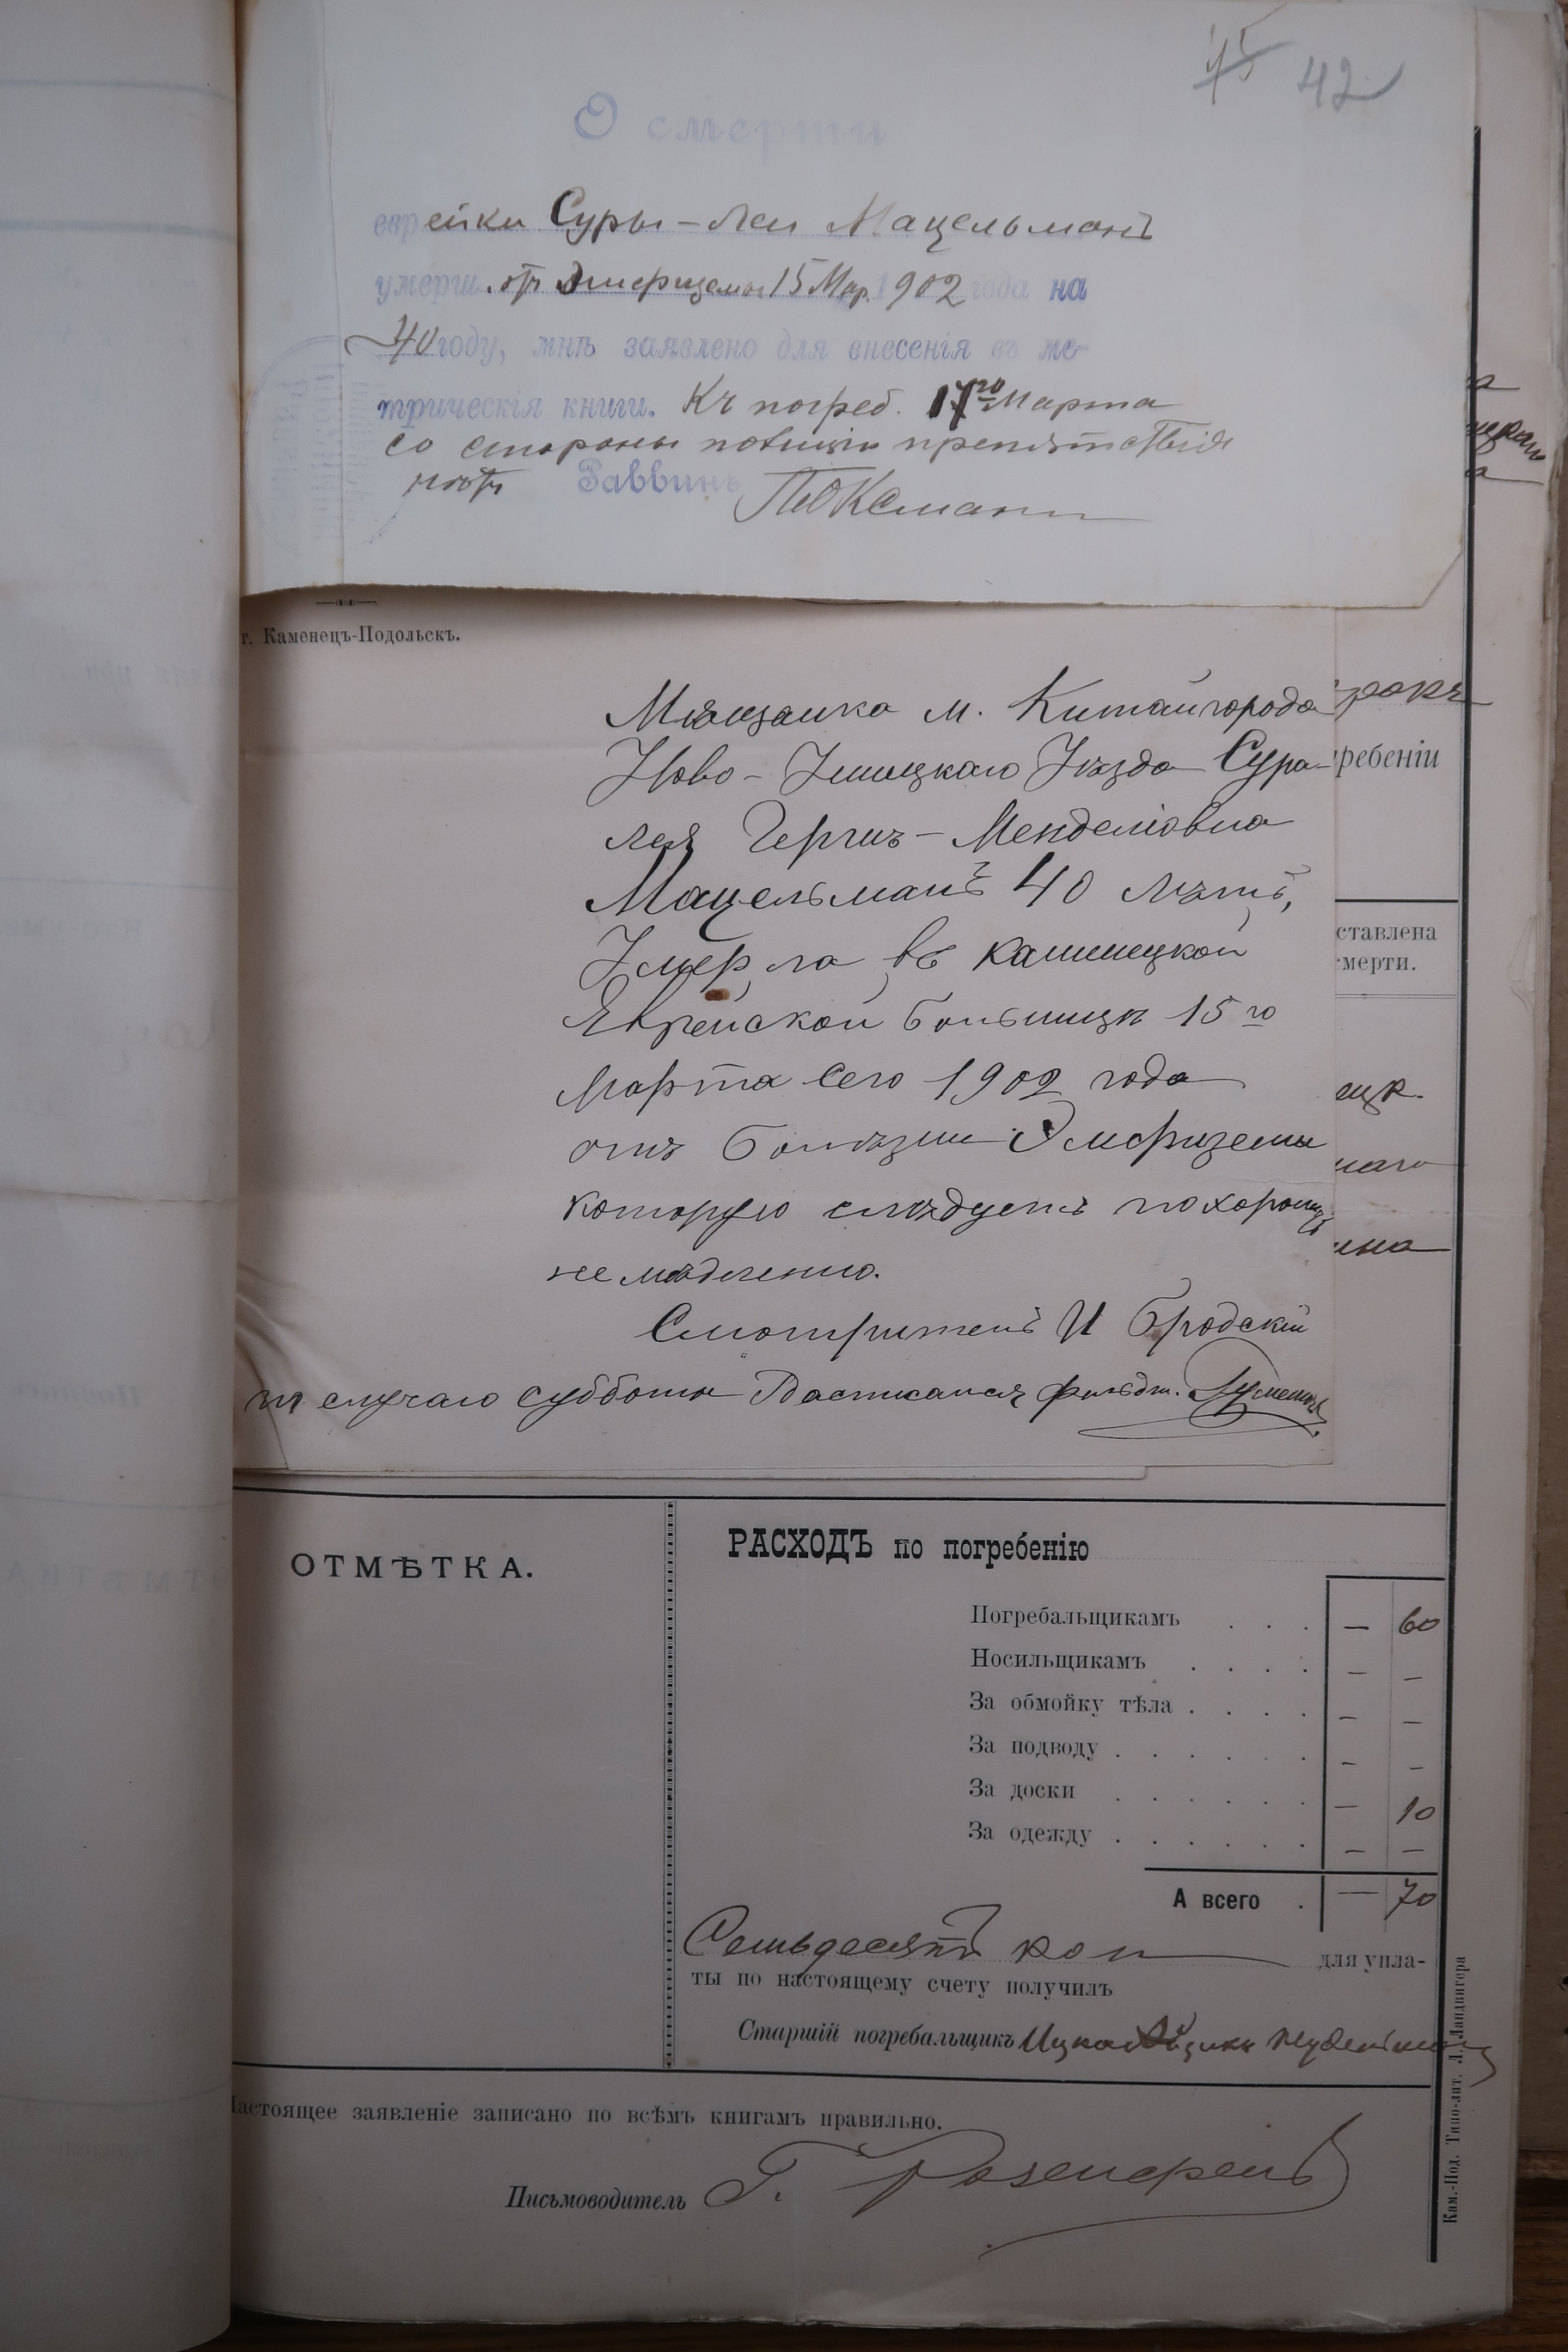 15 42
О смерти
еврейки Суры-Леи Мацельманъ
умерш. отъ Эмфиземы 15 Мар. 1902 года на
40 году, мнѣ заявлено для внесенія въ ме-
трическія книги. Къ погреб. 17го Марта
со стороны полиціи препятствія
нѣтъ Раввинъ
г. Каменецъ-Подольскъ.
Мѣщанка м. Китайгорода
Ново-Ушицкаго Уѣзда Сура-
Лея Гершъ-Менделіовна
Мацельманъ 40 лѣтъ,
Умерла въ Каменецкой
Еврейской больницѣ 15го
Марта сего 1902 года
отъ болѣзни Эмфиземы
которую слѣдуетъ похоронить
немѣдленно.
Смотритель И Бродскій
по случаю субботы Расписался фельдш.
ребеніи
ставлена
мерти.
ецк.
наго
ина
ОТМѢТКА.
РАСХОДЪ по погребенію
Погребальщикамъ . . . — 60
Носильщикамъ . . . . — —
За обмойку тѣла . . . . — —
За подводу . . . . . . — —
За доски . . . . . . — 10
За одежду . . . . . . — —
А всего . — 70
Семьдесятъ коп для упла-
ты по настоящему счету получилъ
Старшій погребальщикъ Ицко
Настоящее заявленіе записано по всѣмъ книгамъ правильно.
Письмоводитель Г. Розенфельдъ
Кам.-Под. Типо-лит. Л. Ландвигера